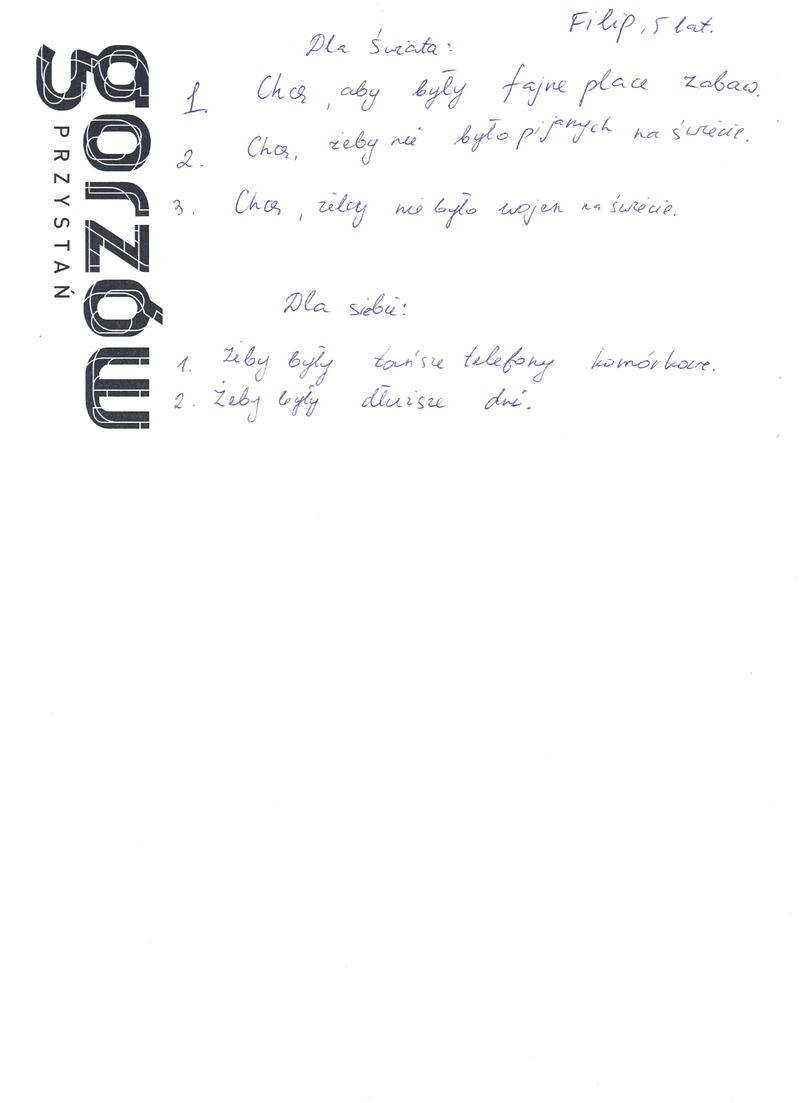 Filip, 5 lat.
Dla świata:
1. Chcę, aby były fajne place zabaw.
2. Chcę, żeby nie było pijanych na świecie.
3. Chcę, żeby nie było wojen na świecie.
Dla siebie:
1. Żeby były tańsze telefony komórkowe.
2. Żeby były dłuższe dni.
gorzów
PRZYSTAŃ